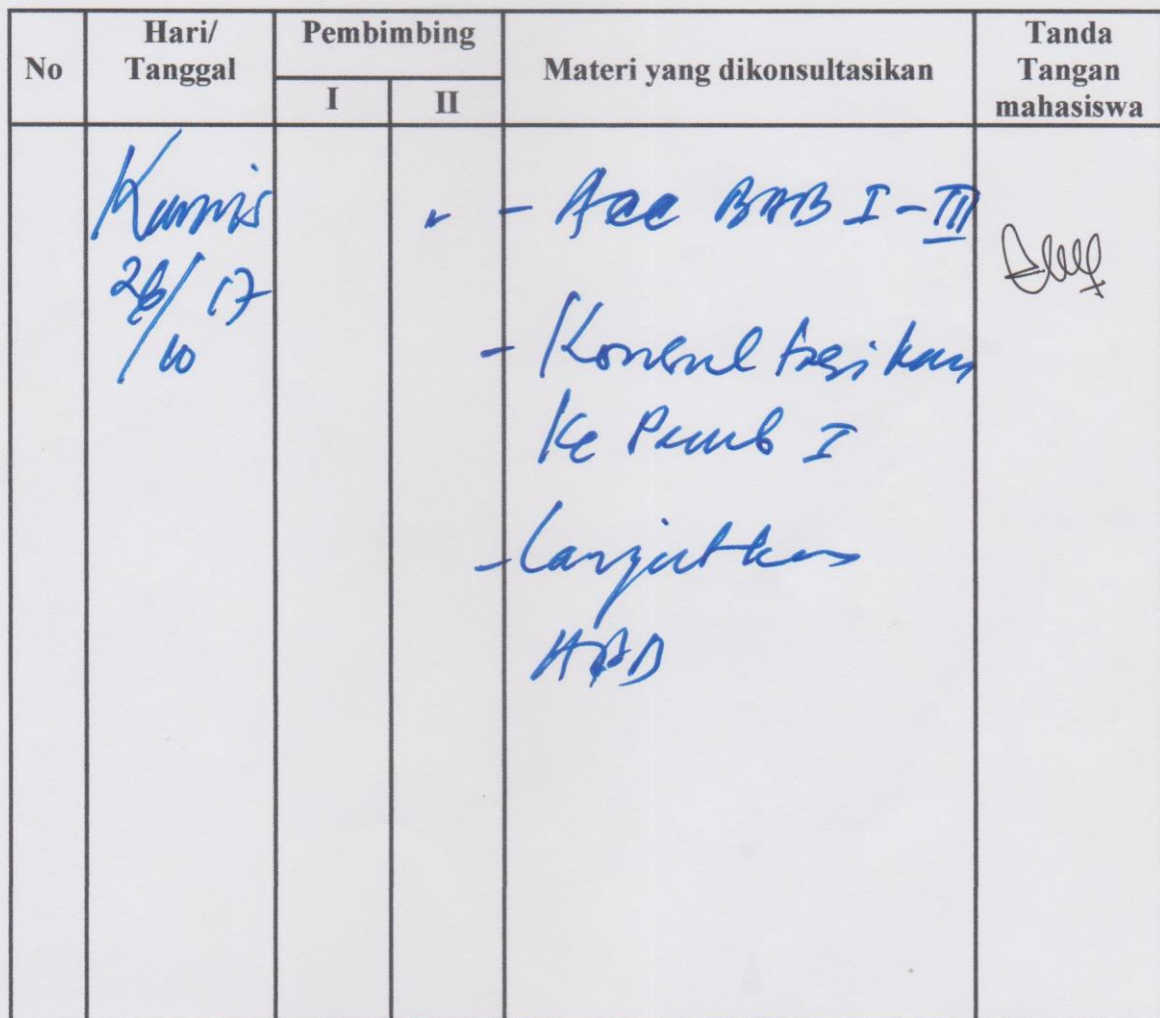 No
Hari/
Tanggal
Pembimbing
I
II
Materi yang dikonsultasikan
Tanda
Tangan
mahasiswa
Kamis
26/10 17
- Acc BAB I - III
- Konsultasikan
Ke Pemb I
- Lanjutkan